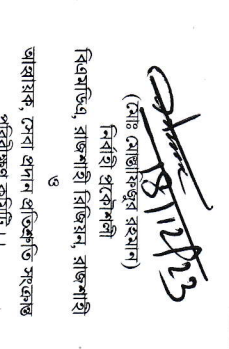 18/12/23
(মোঃ মোস্তাফিজুর রহমান)
নির্বাহী প্রকৌশলী
বিএমডিএ, রাজশাহী রিজিয়ন, রাজশাহী
ও
আহবায়ক, সেবা প্রদান প্রতিশ্রুতি সংক্রান্ত
পরিবীক্ষণ কমিটি।